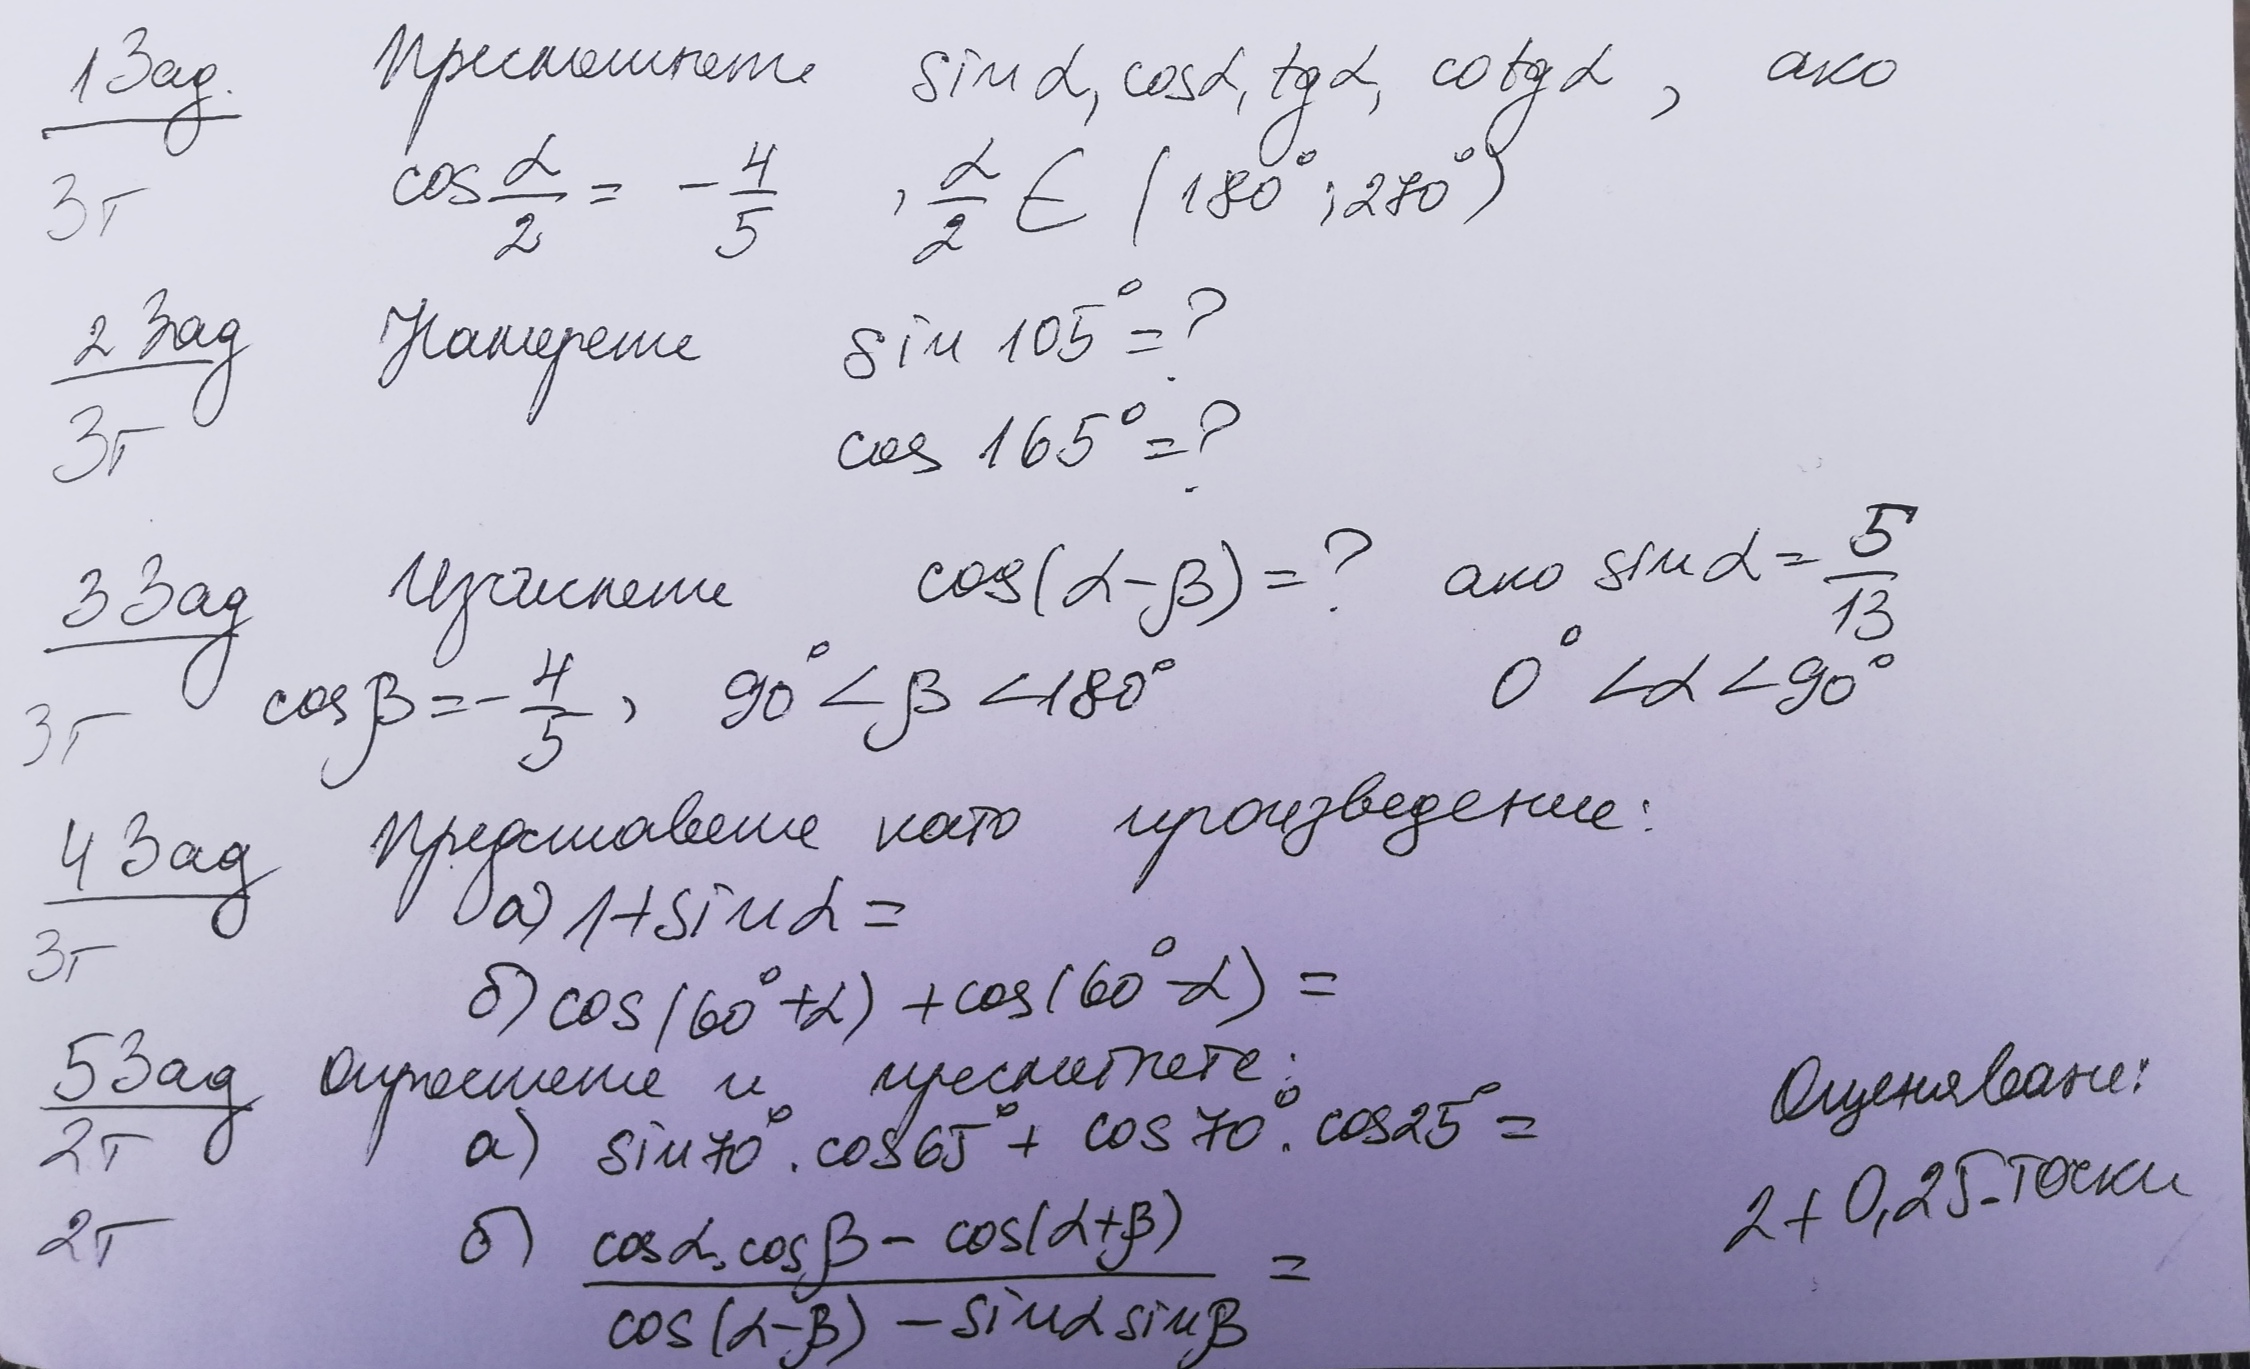 1 Зад. Пресметнете sin α, cos α, tg α, cotg α, ако
3т cos α/2 = - 4/5 , α/2 ∈ (180°; 270°)
2 Зад Намерете sin 105° = ?
3т cos 165° = ?
3 Зад Изчислете cos(α-β) = ? ако sin α = 5/13
3т cos β = - 4/5, 90° < β < 180° 0° < α < 90°
4 Зад Представете като произведение:
а) 1 + sin α =
3т
б) cos(60°+α) + cos(60°-α) =
5 Зад Опростете и пресметнете:
2т а) sin 70° . cos 65° + cos 70° . cos 25° =
Оценяване:
2 + 0,25.точки
2т б) (cos α . cos β - cos(α+β)) / (cos(α-β) - sin α sin β) =